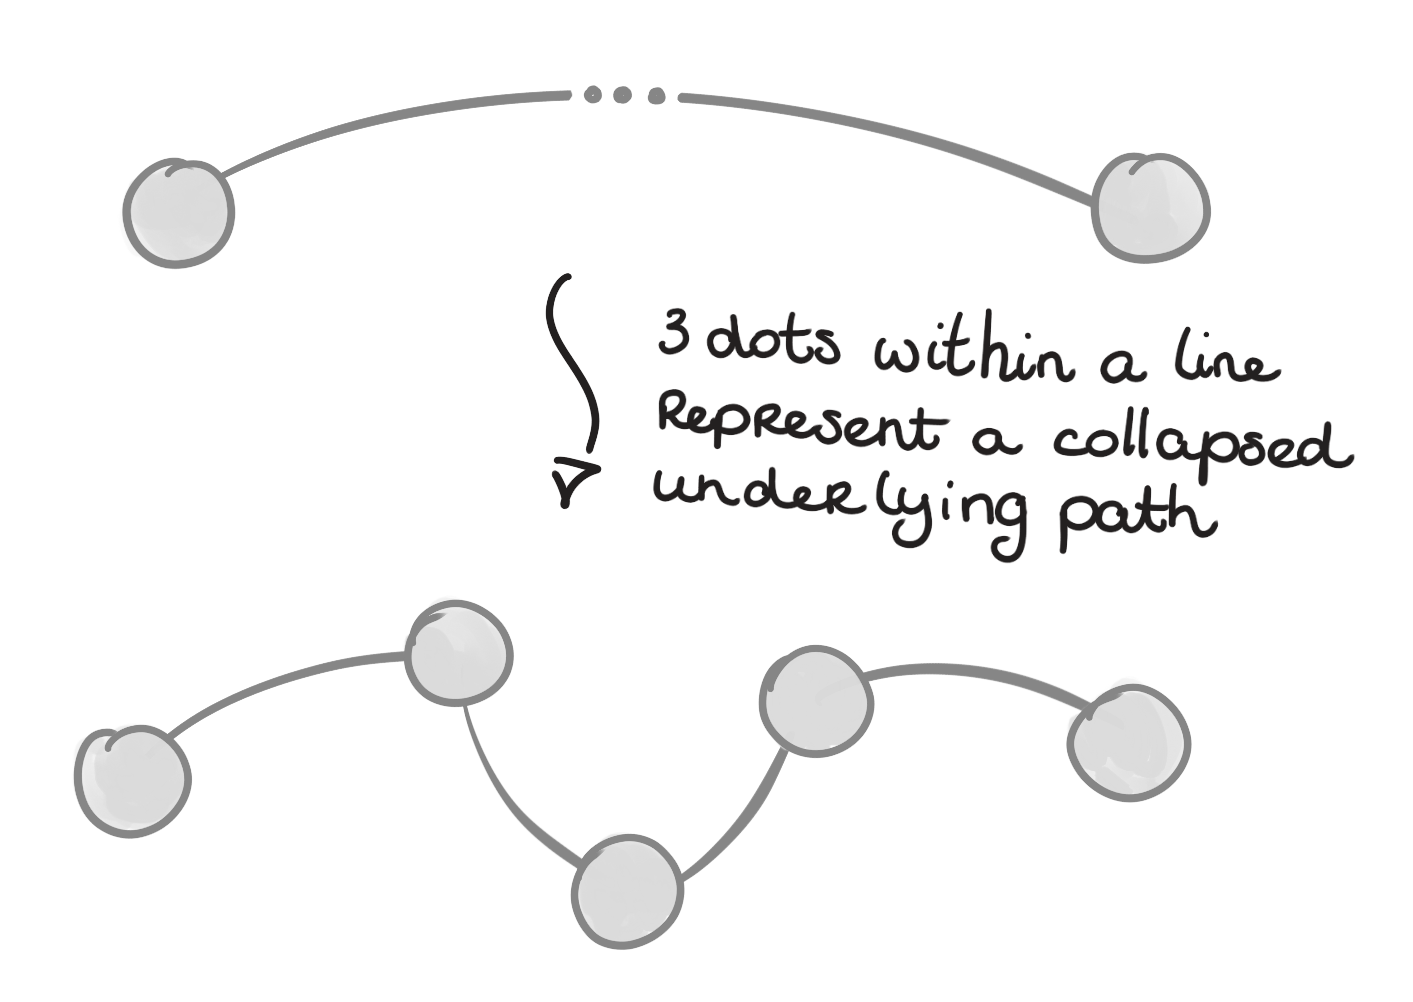 3 dots within a line
Represent a collapsed
underlying path